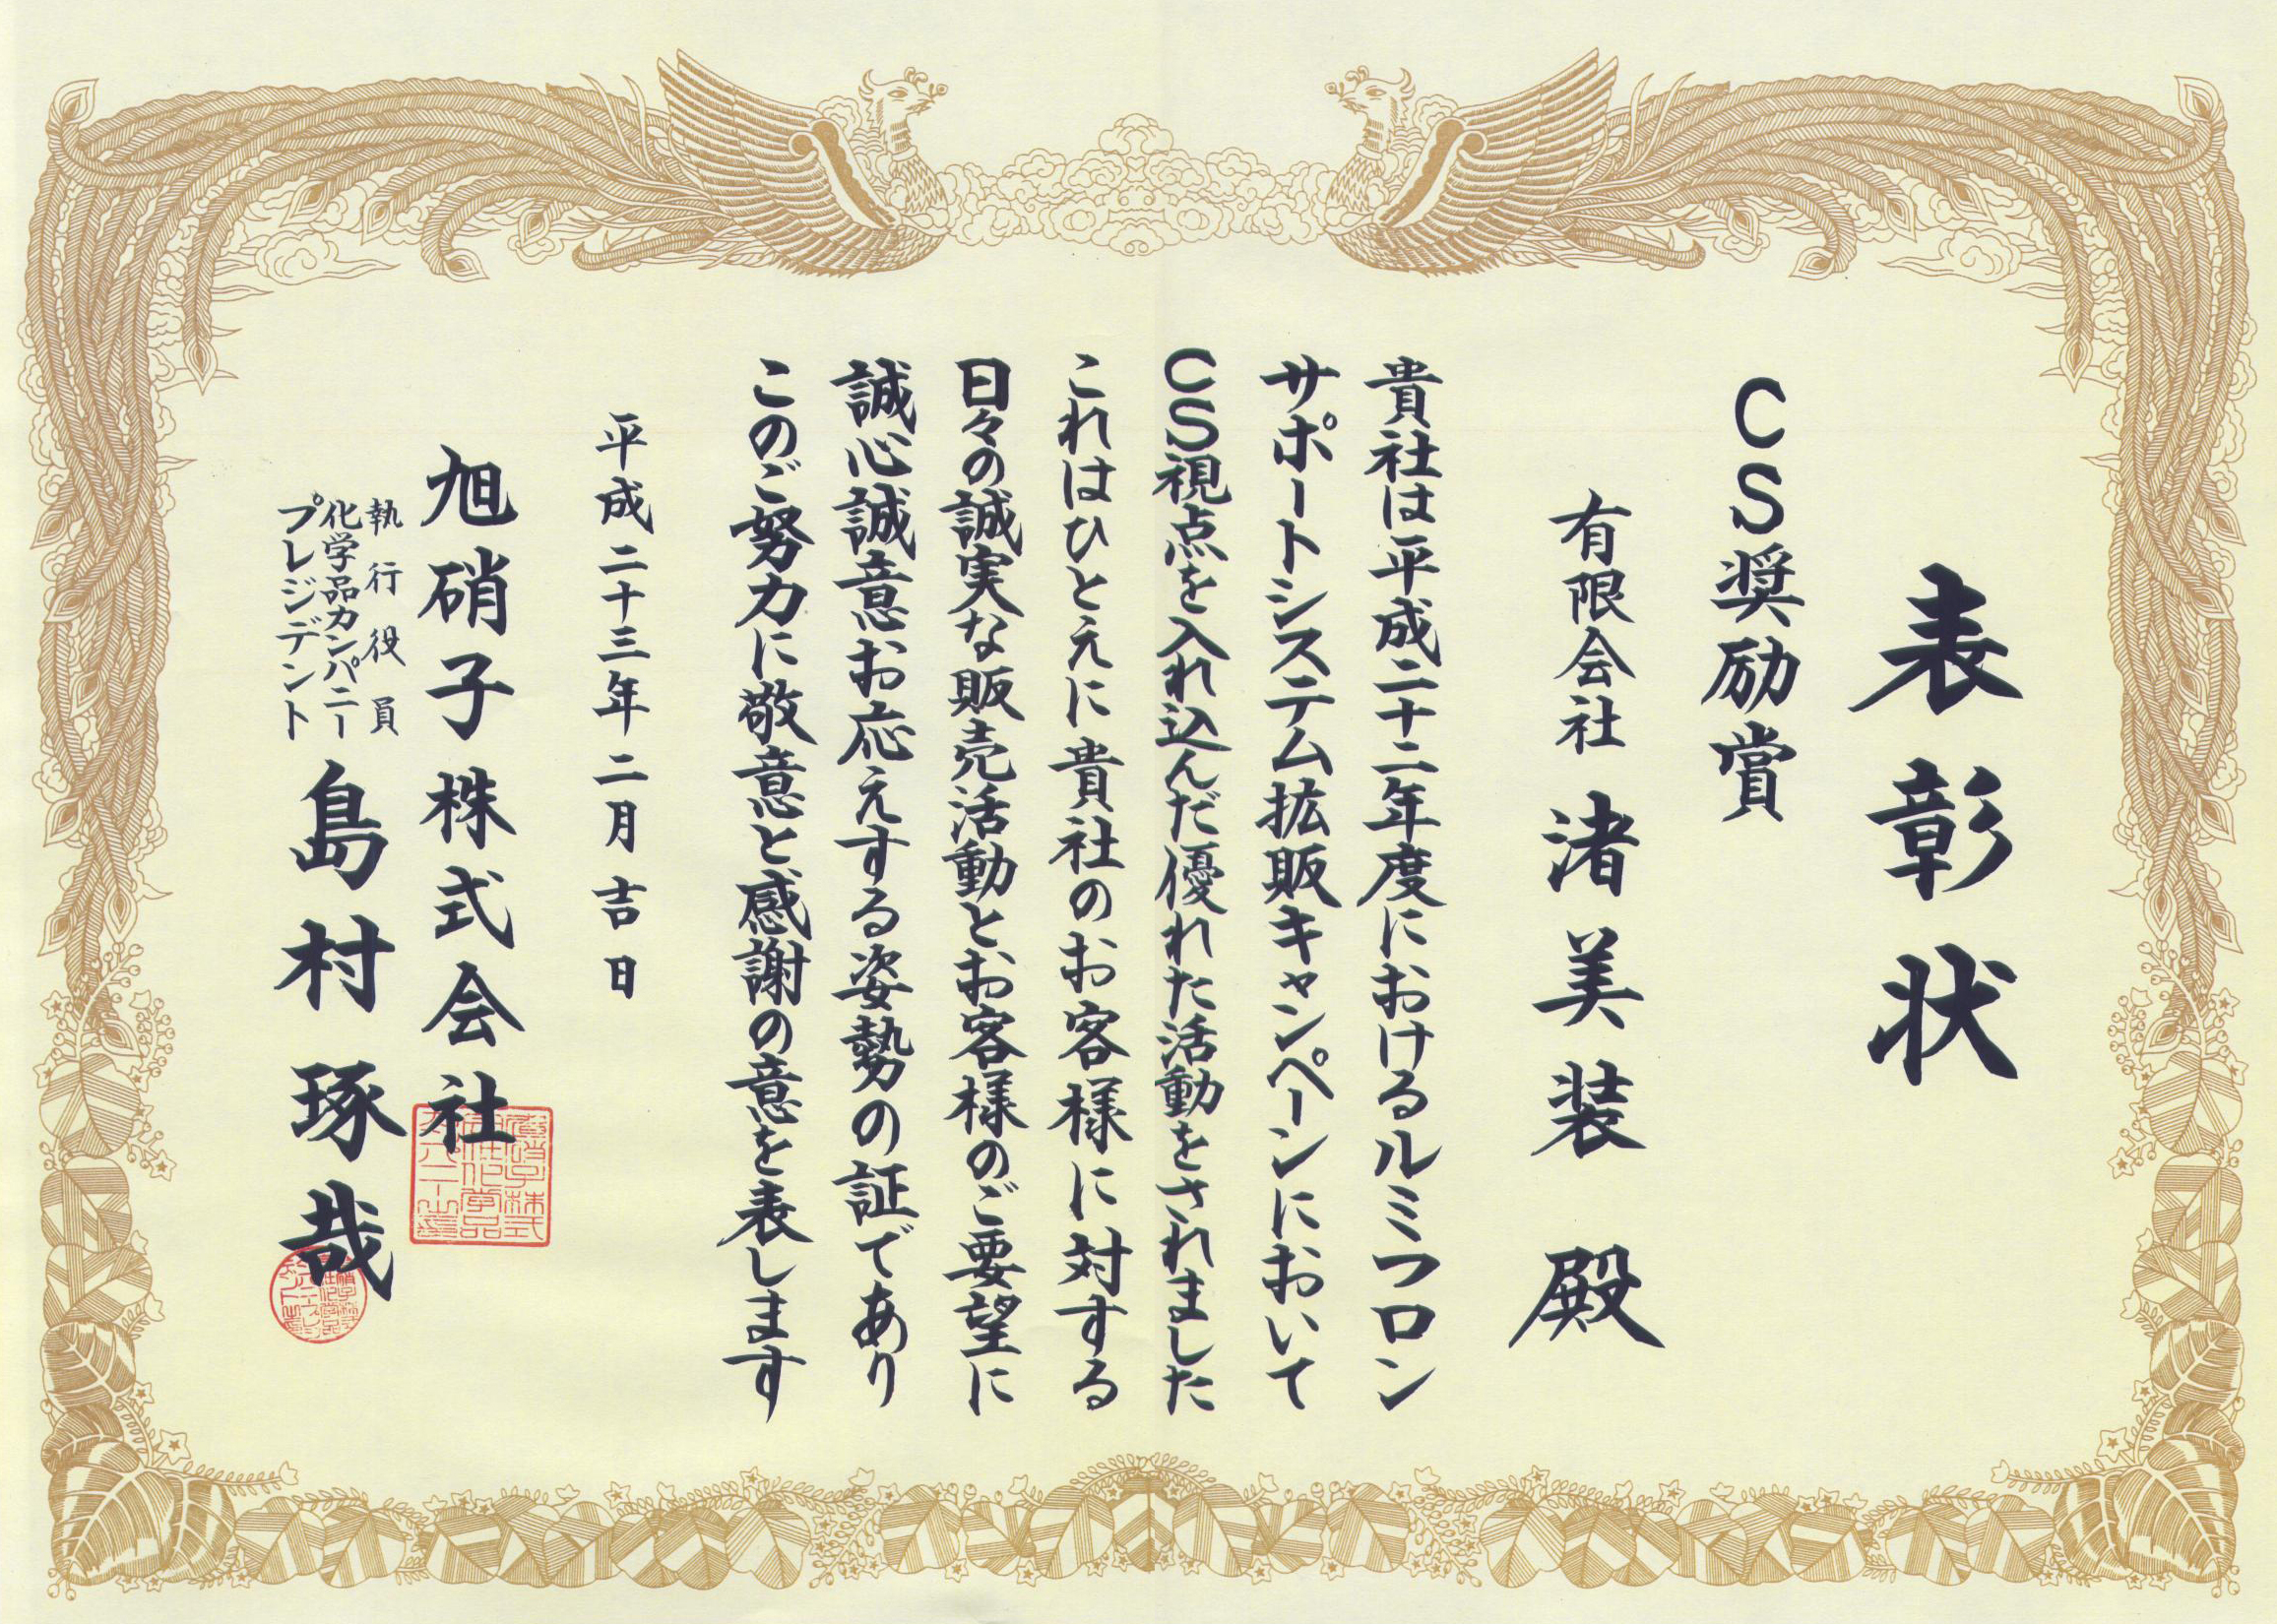 表彰状
CS奨励賞
有限会社 渚美装 殿
貴社は平成二十二年度におけるルミフロン
サポートシステム拡販キャンペーンにおいて
CS視点を入れ込んだ優れた活動をされました
これはひとえに貴社のお客様に対する
日々の誠実な販売活動とお客様のご要望に
誠心誠意お応えする姿勢の証であり
このご努力に敬意と感謝の意を表します
平成二十三年二月吉日
旭硝子株式会社
執行役員
化学品カンパニー
プレジデント
島村琢哉